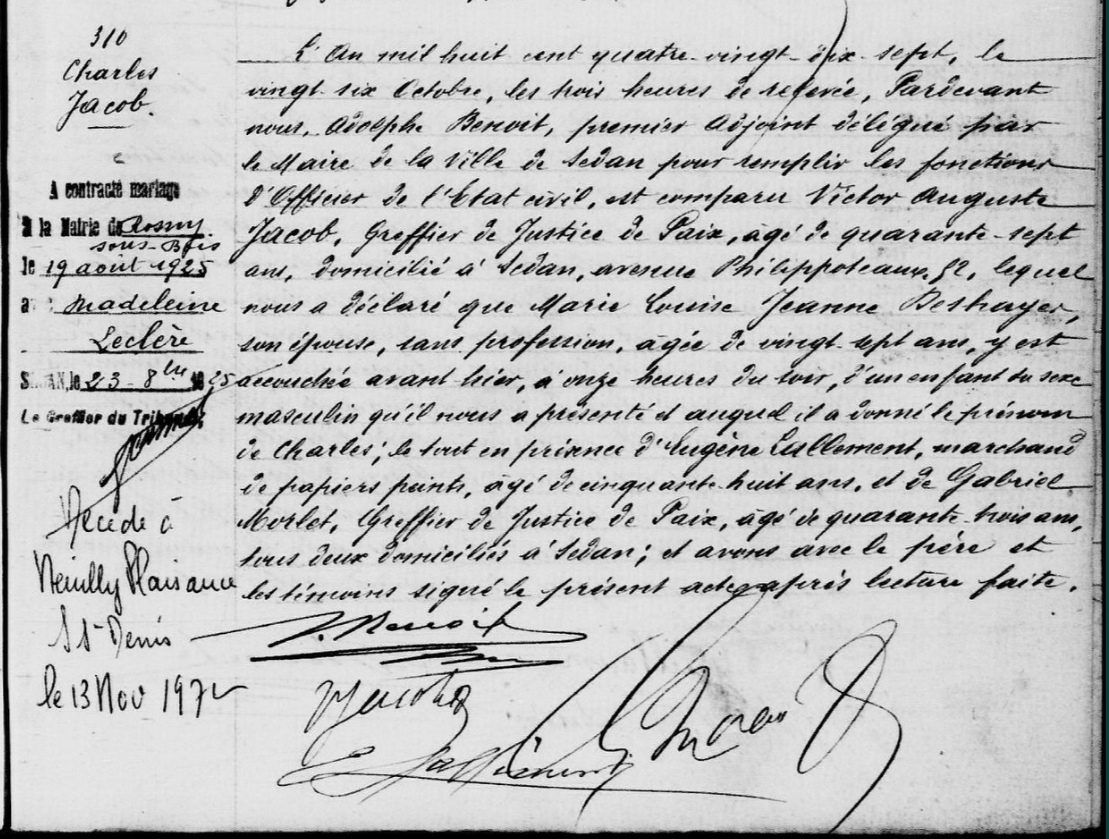 310
Charles
Jacob.
A contracté mariage
à la Mairie de Rosny
sous-Bois
le 19 août 1925
avec Madeleine
Leclère
SEDAN, le 23 - 8bre 1925
Le Greffier du Tribunal
Décédé à
Neuilly Plaisance
St Denis
le 13 Nov 197
L'An mil huit cent quatre-vingt-dix-sept, le
vingt-six Octobre, les trois heures de relevée, Pardevant
nous, Adolphe Benoit, premier Adjoint délégué par
le Maire de la Ville de Sedan pour remplir les fonctions
d'Officier de l'Etat civil, est comparu Victor Auguste
Jacob, Greffier de Justice de Paix, âgé de quarante-sept
ans, domicilié à Sedan, avenue Philippoteaux, 52, lequel
nous a déclaré que Marie Louise Jeanne Deshayes,
son épouse, sans profession, âgée de vingt sept ans, y est
accouchée avant hier, à onze heures du soir, d'un enfant du sexe
masculin qu'il nous a présenté et auquel il a donné le prénom
de Charles; le tout en présence d'Eugène Lallement, marchand
de papiers peints, âgé de cinquante-huit ans, et de Gabriel
Morlet, Greffier de Justice de Paix, âgé de quarante-trois ans,
tous deux domiciliés à Sedan; et avons avec le père et
les témoins signé le présent acte après lecture faite.
A. Benoit
VJacob
E Lallement